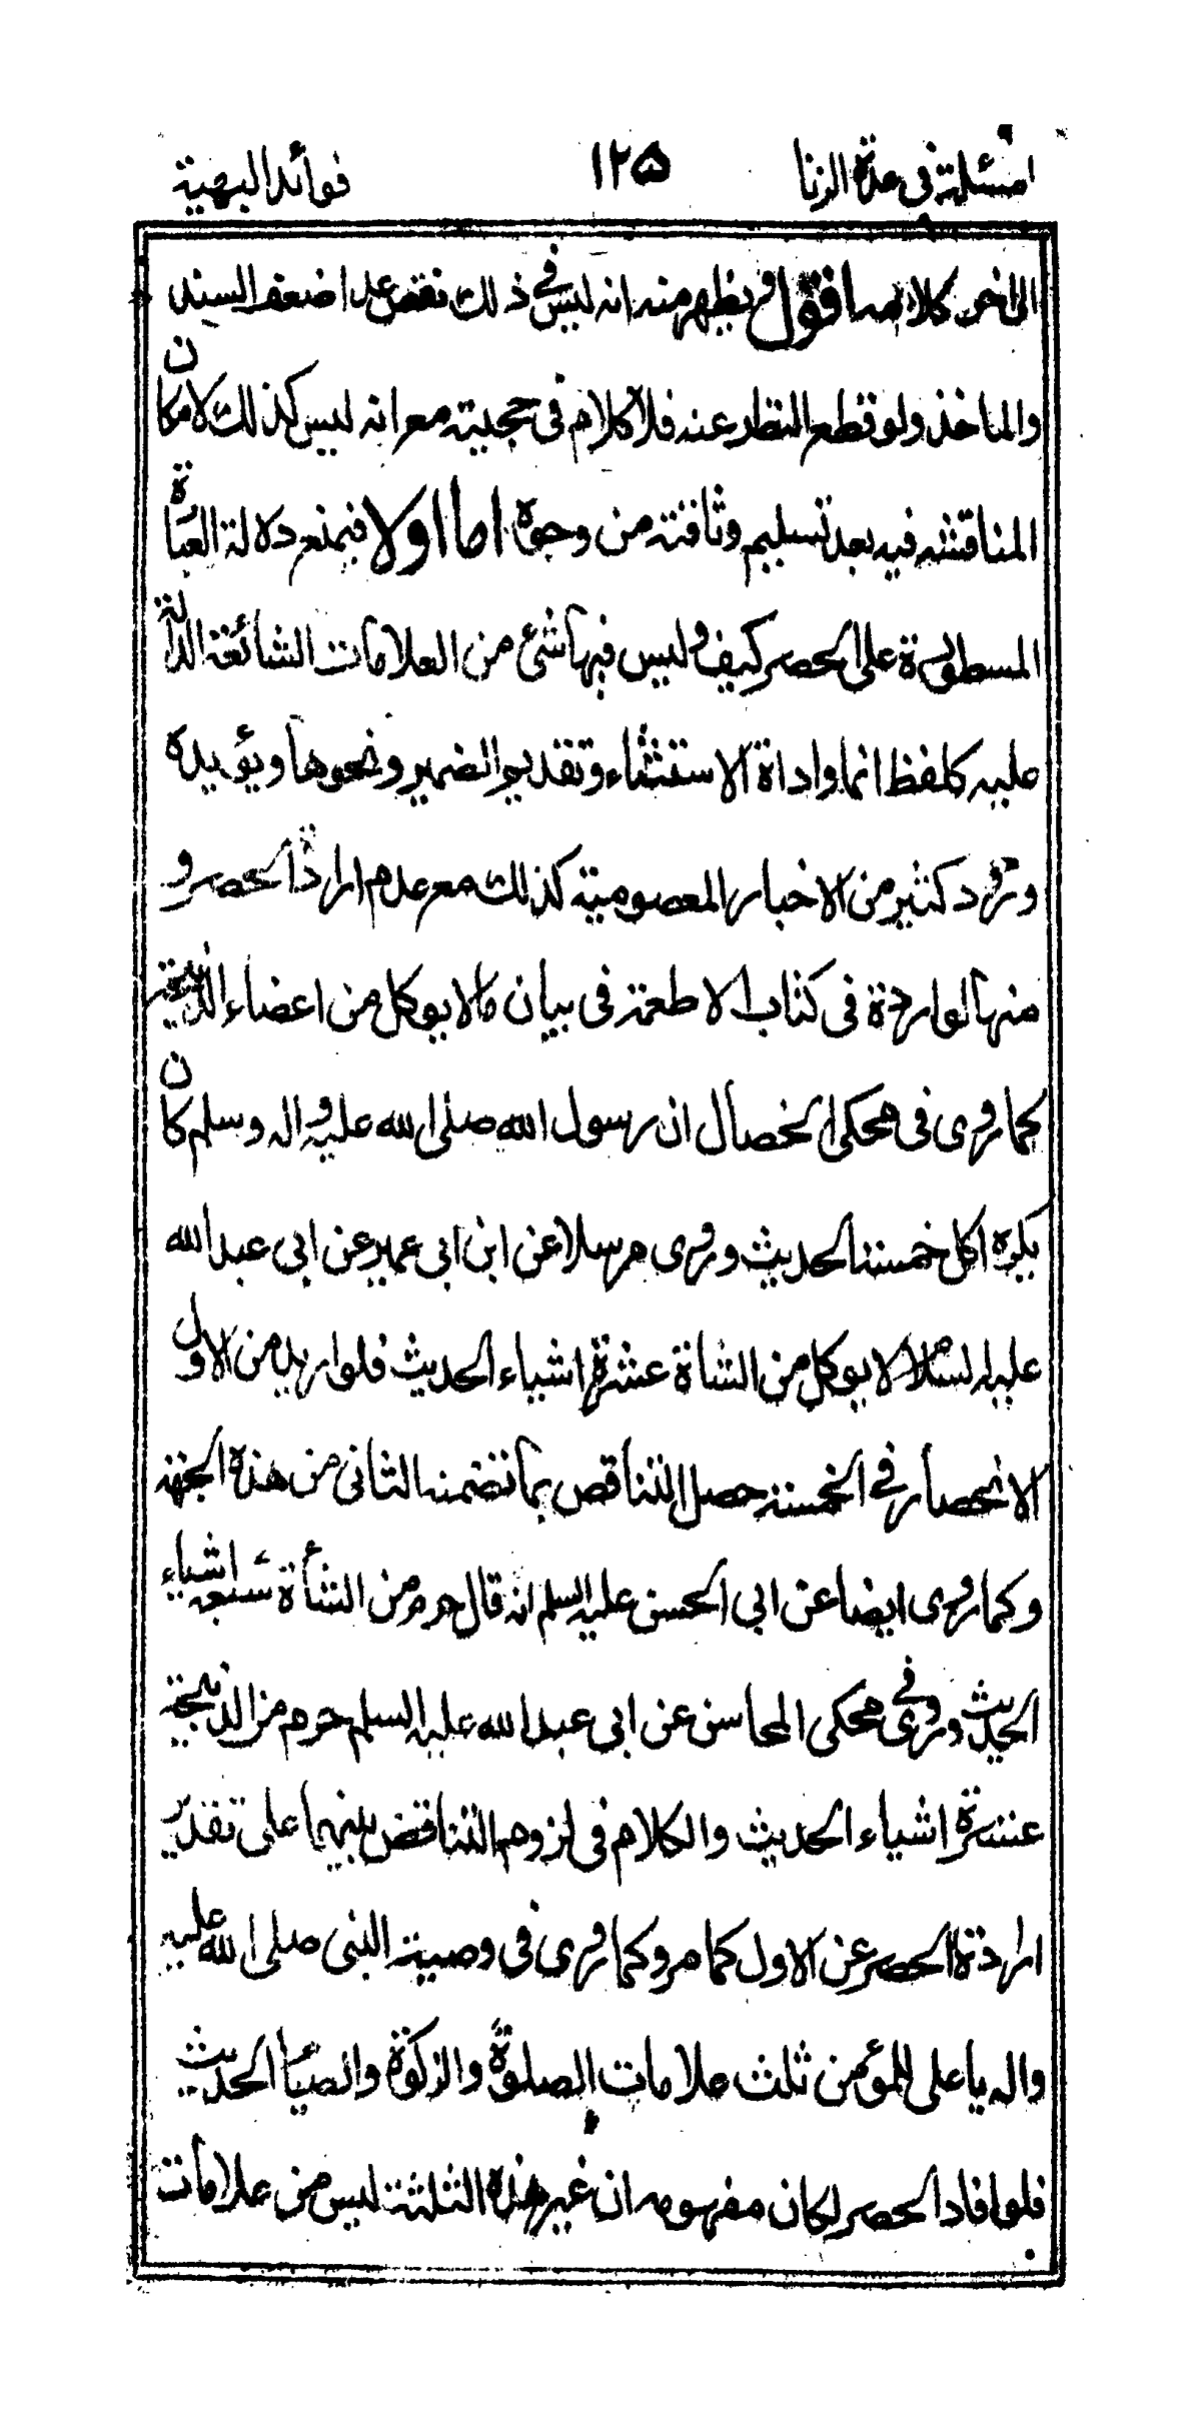 مسئلة في عدة الزنا ١٢٥ فوائد البهية
الى اخر كلامه اقول ويظهر منه انه ليس في ذلك نقض عدا ضعف السند
والماخذ ولو قطع النظر عنه فلا كلام في حجيته مع انه ليس كذلك لامكان
المناقشة فيه بعد تسليم وثاقته من وجوه اما اولا فبمنع دلالة العبارة
المسطورة على الحصر كيف وليس فيها شئ من العلامات الشائعة الدالة
عليه كلفظ انما واداة الاستثناء وتقديم الضمير ونحوها ويؤيده
ورود كثير من الاخبار المعصومية كذلك مع عدم ارادة الحصر و
منها الواردة في كتاب الاطعمة في بيان ما لا يوكل من اعضاء الذبيحة
كما روى في محكي الخصال ان رسول الله صلى الله عليه واله وسلم كان
يكره اكل خمسة الحديث وروى مرسلا عن ابن ابي عمير عن ابي عبد الله
عليه السلام لا يوكل من الشاة عشرة اشياء الحديث فلو اريد من الاول
الانحصار في الخمسة حصل التناقص بما تضمنه الثاني من هذه الجهة
وكما روى ايضا عن ابي الحسن عليه السلم انه قال حرم من الشاة سبعة اشياء
الحديث وروى في محكي المحاسن عن ابي عبد الله عليه السلم حرم من الذبيحة
عشرة اشياء الحديث والكلام في لزوم التناقض بينهما على تقدير
ارادة الحصر عن الاول كما مر وكما روى في وصية النبي صلى الله عليه
واله يا علي للمؤمن ثلث علامات الصلوة والزكوة والصيام الحديث
فلو افاد الحصر لكان مفهومه ان غير هذه الثلثة ليس من علامات